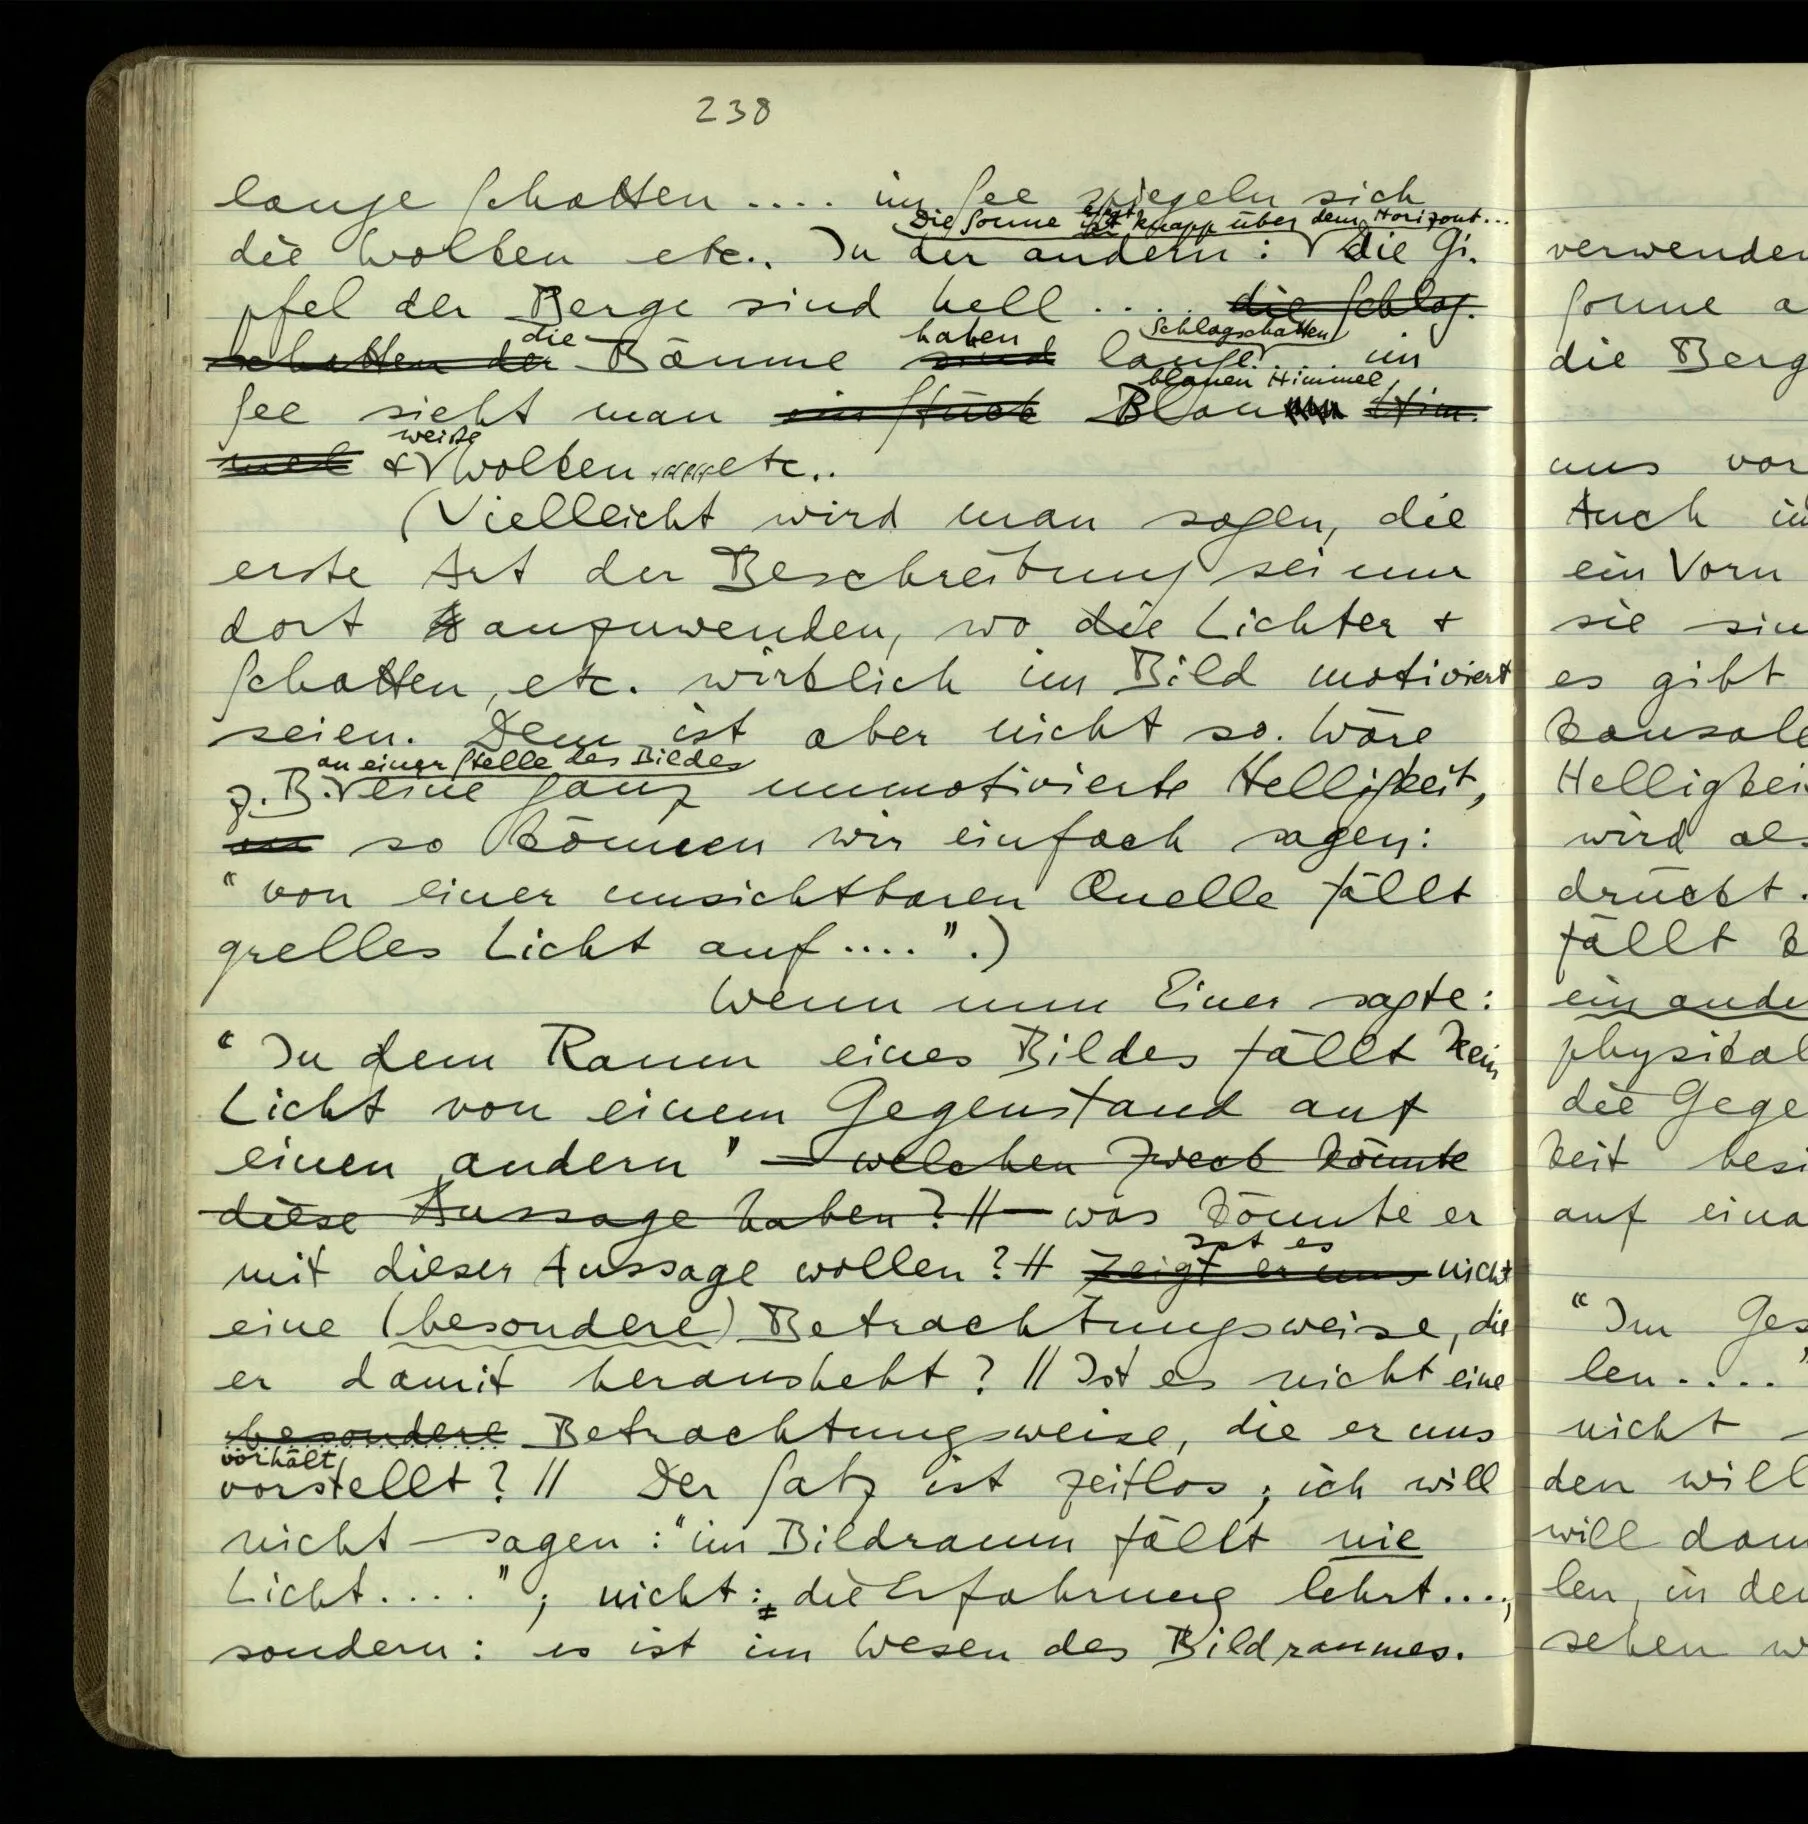 238
lange Schatten .... im See spiegeln sich
Die Sonne ist knapp über dem Horizont...
die Wolken etc.. In der andern: die Gi-
pfel der Berge sind hell ..... die Schlag-
die haben Schlagschatten
schatten der Bäume sind lange ..... im
blauen Himmel
See sieht man ein Stück Blau Him-
weiße
mel & Wolken etc..
(Vielleicht wird man sagen, die
erste Art der Beschreibung sei nur
dort anzuwenden, wo die Lichter +
Schatten, etc. wirklich im Bild motiviert
seien. Dem ist aber nicht so. Wäre
an einer Stelle des Bildes
z.B. eine ganz unmotivierte Helligkeit,
so können wir einfach sagen:
"von einer unsichtbaren Quelle fällt
grelles Licht auf ....".)
Wenn nun Einer sagte:
"In dem Raum eines Bildes fällt kein
Licht von einem Gegenstand auf
einen andern" – welchen Zweck könnte
diese Aussage haben? // – was könnte er
ist es
mit dieser Aussage wollen? // zeigt er uns nicht
eine (besondere) Betrachtungsweise, die
er damit heraushebt? // Ist es nicht eine
besondere Betrachtungsweise, die er uns
vorhält
vorstellt? // Der Satz ist zeitlos; ich will
nicht sagen: "im Bildraum fällt nie
Licht ...."; nicht: die Erfahrung lehrt ....;
sondern: es ist im Wesen des Bildraumes.
verwenden
Sonne a
die Berg
uns vor
Auch im
ein Vorn
sie sin
es gibt
kausale
Helligkei
wird als
drückt.
fällt k
ein ande
physikal
die Gege
keit besi
auf eina
"Im Ges
len ...."
nicht
den will
will dam
len, in der
sehen w